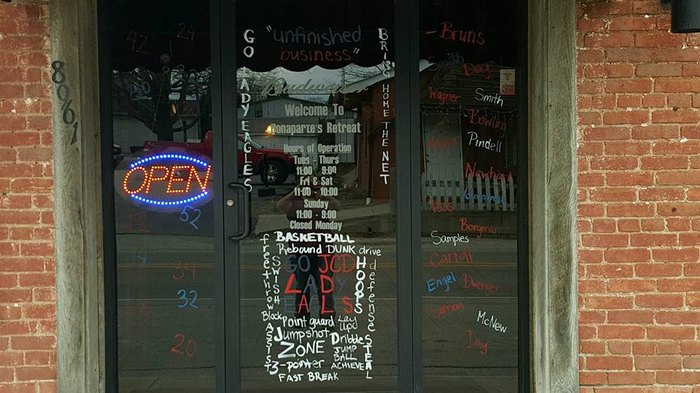 8061
42 24
OPEN
52
32
32
20
GO LADY EAGLES
"unfinished
business"
BRING HOME THE NET
Budweiser
Welcome To
Bonaparte's Retreat
Hours of Operation
Tues - Thurs
11:00 - 9:00
Fri & Sat
11:00 - 10:00
Sunday
11:00 - 9:00
Closed Monday
BASKETBALL
Rebound DUNK drive
freethrow
SWISH
HOOPS
defense
GO JCD
LADY
EALS
Block
ASSIST
Point guard Lay
UPS
Jumpshot
Dribble
ZONE
JUMP
BALL
STEAL
3-pointer
ACHIEVE
FAST BREAK
Bruns
Smith
Day
Wagner
Smith
Bowling
Pindell
Vass
Borgman
Samples
Carroll
Engel
McNew